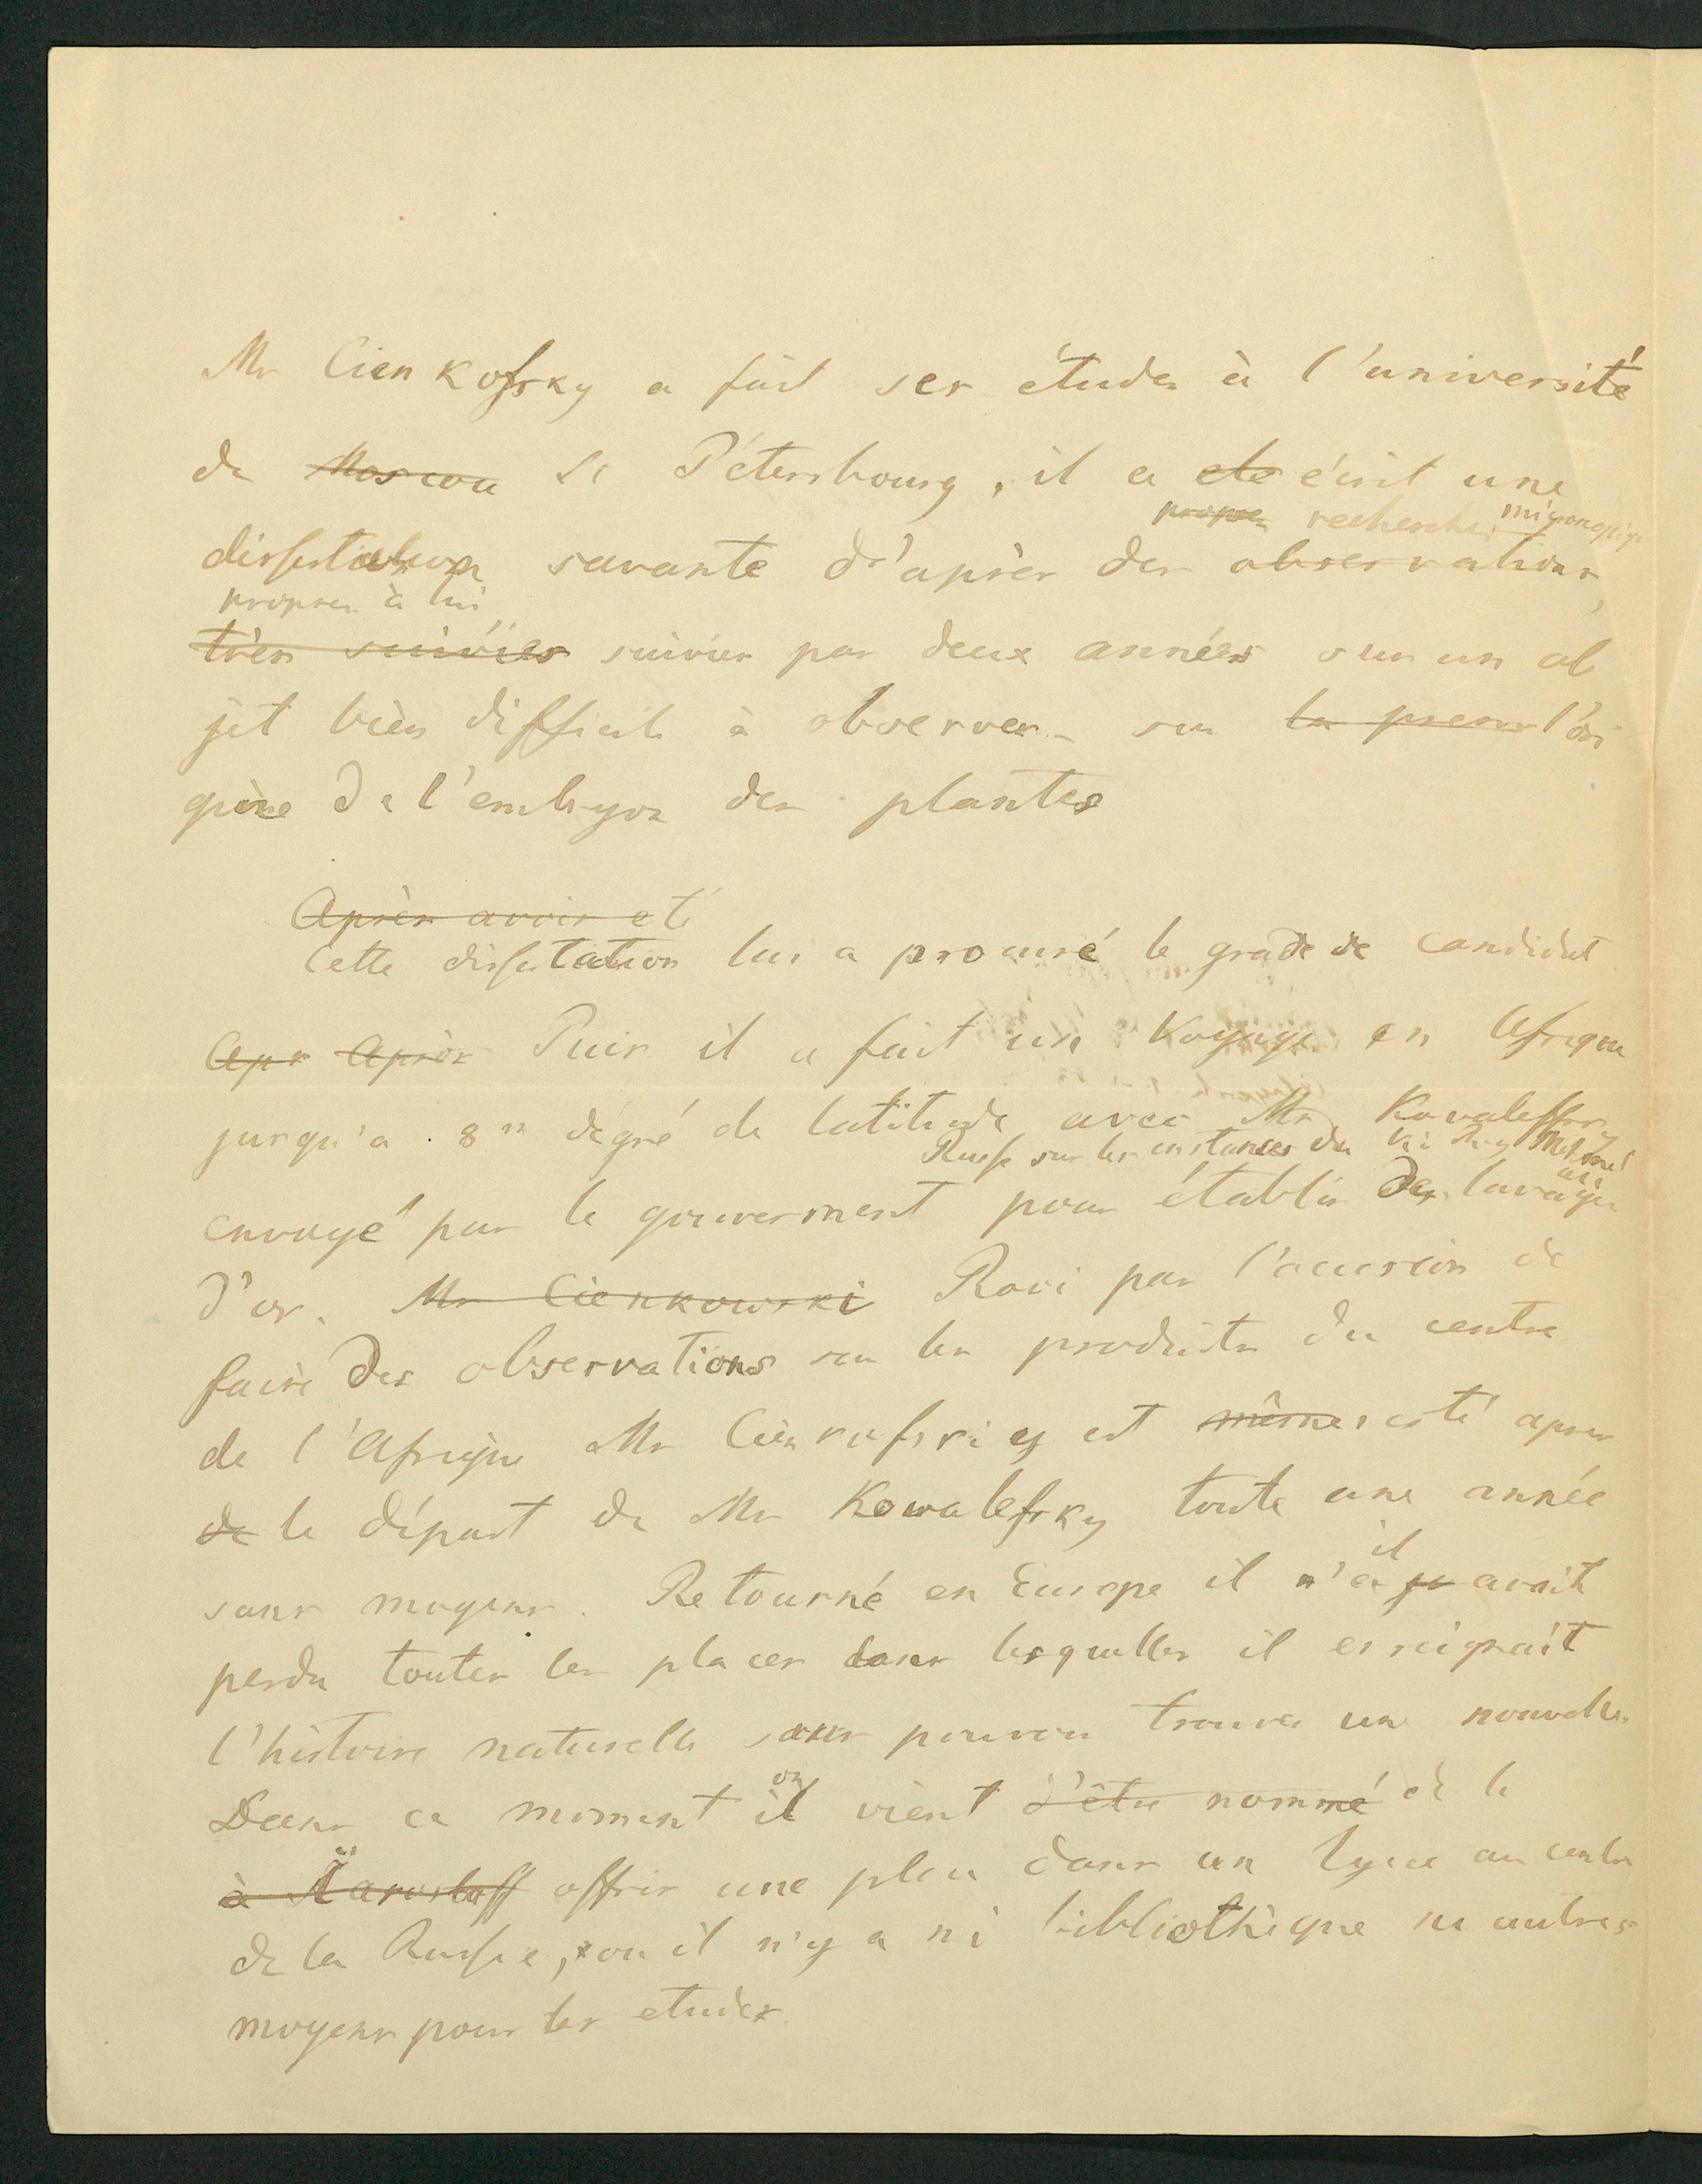 Mr Cienkofsky a fait ses études à l'université
de Moscou St Pétersbourg, il a ete écrit une
propres recherches microscopiques
dissertation savante d'après des observations,
propres à lui
très suivies suivies par deux années sur un ob
jet bien difficile à observer – sur la prem l'ori
gine de l'embryon des plantes
Après avoir eté
Cette dissertation lui a procuré le grade de candidat
Apr Après Puis il a fait un voyage en Afrique
jusqu'a 8me dégré de latitude avec Mr Kovaleffsky
Russe sur les instances du Vice Roy Mehmet
Ali
envoyé par le gouverment pour établir des lavages
d'or. Mr Cienkowski Ravi par l'occasion de
faire des observations sur les produits du centre
de l'Afrique Mr Cienkofsky est même resté apres
de le départ de Mr Kowalefsky toute une année
sans moyens. Retourné en Europe il n'a
il
avait
perdu toutes les places dans lesquelles il enseignait
l'histoire naturelle sans pouvoir trouver une nouvelle.
on
Dans ce moment il vient d'être nommé de le
à Jaroslaff offrir une place dans un lycée au centre
de la Russie, ou il n'y a ni bibliothèque ni autres
moyens pour les etudes